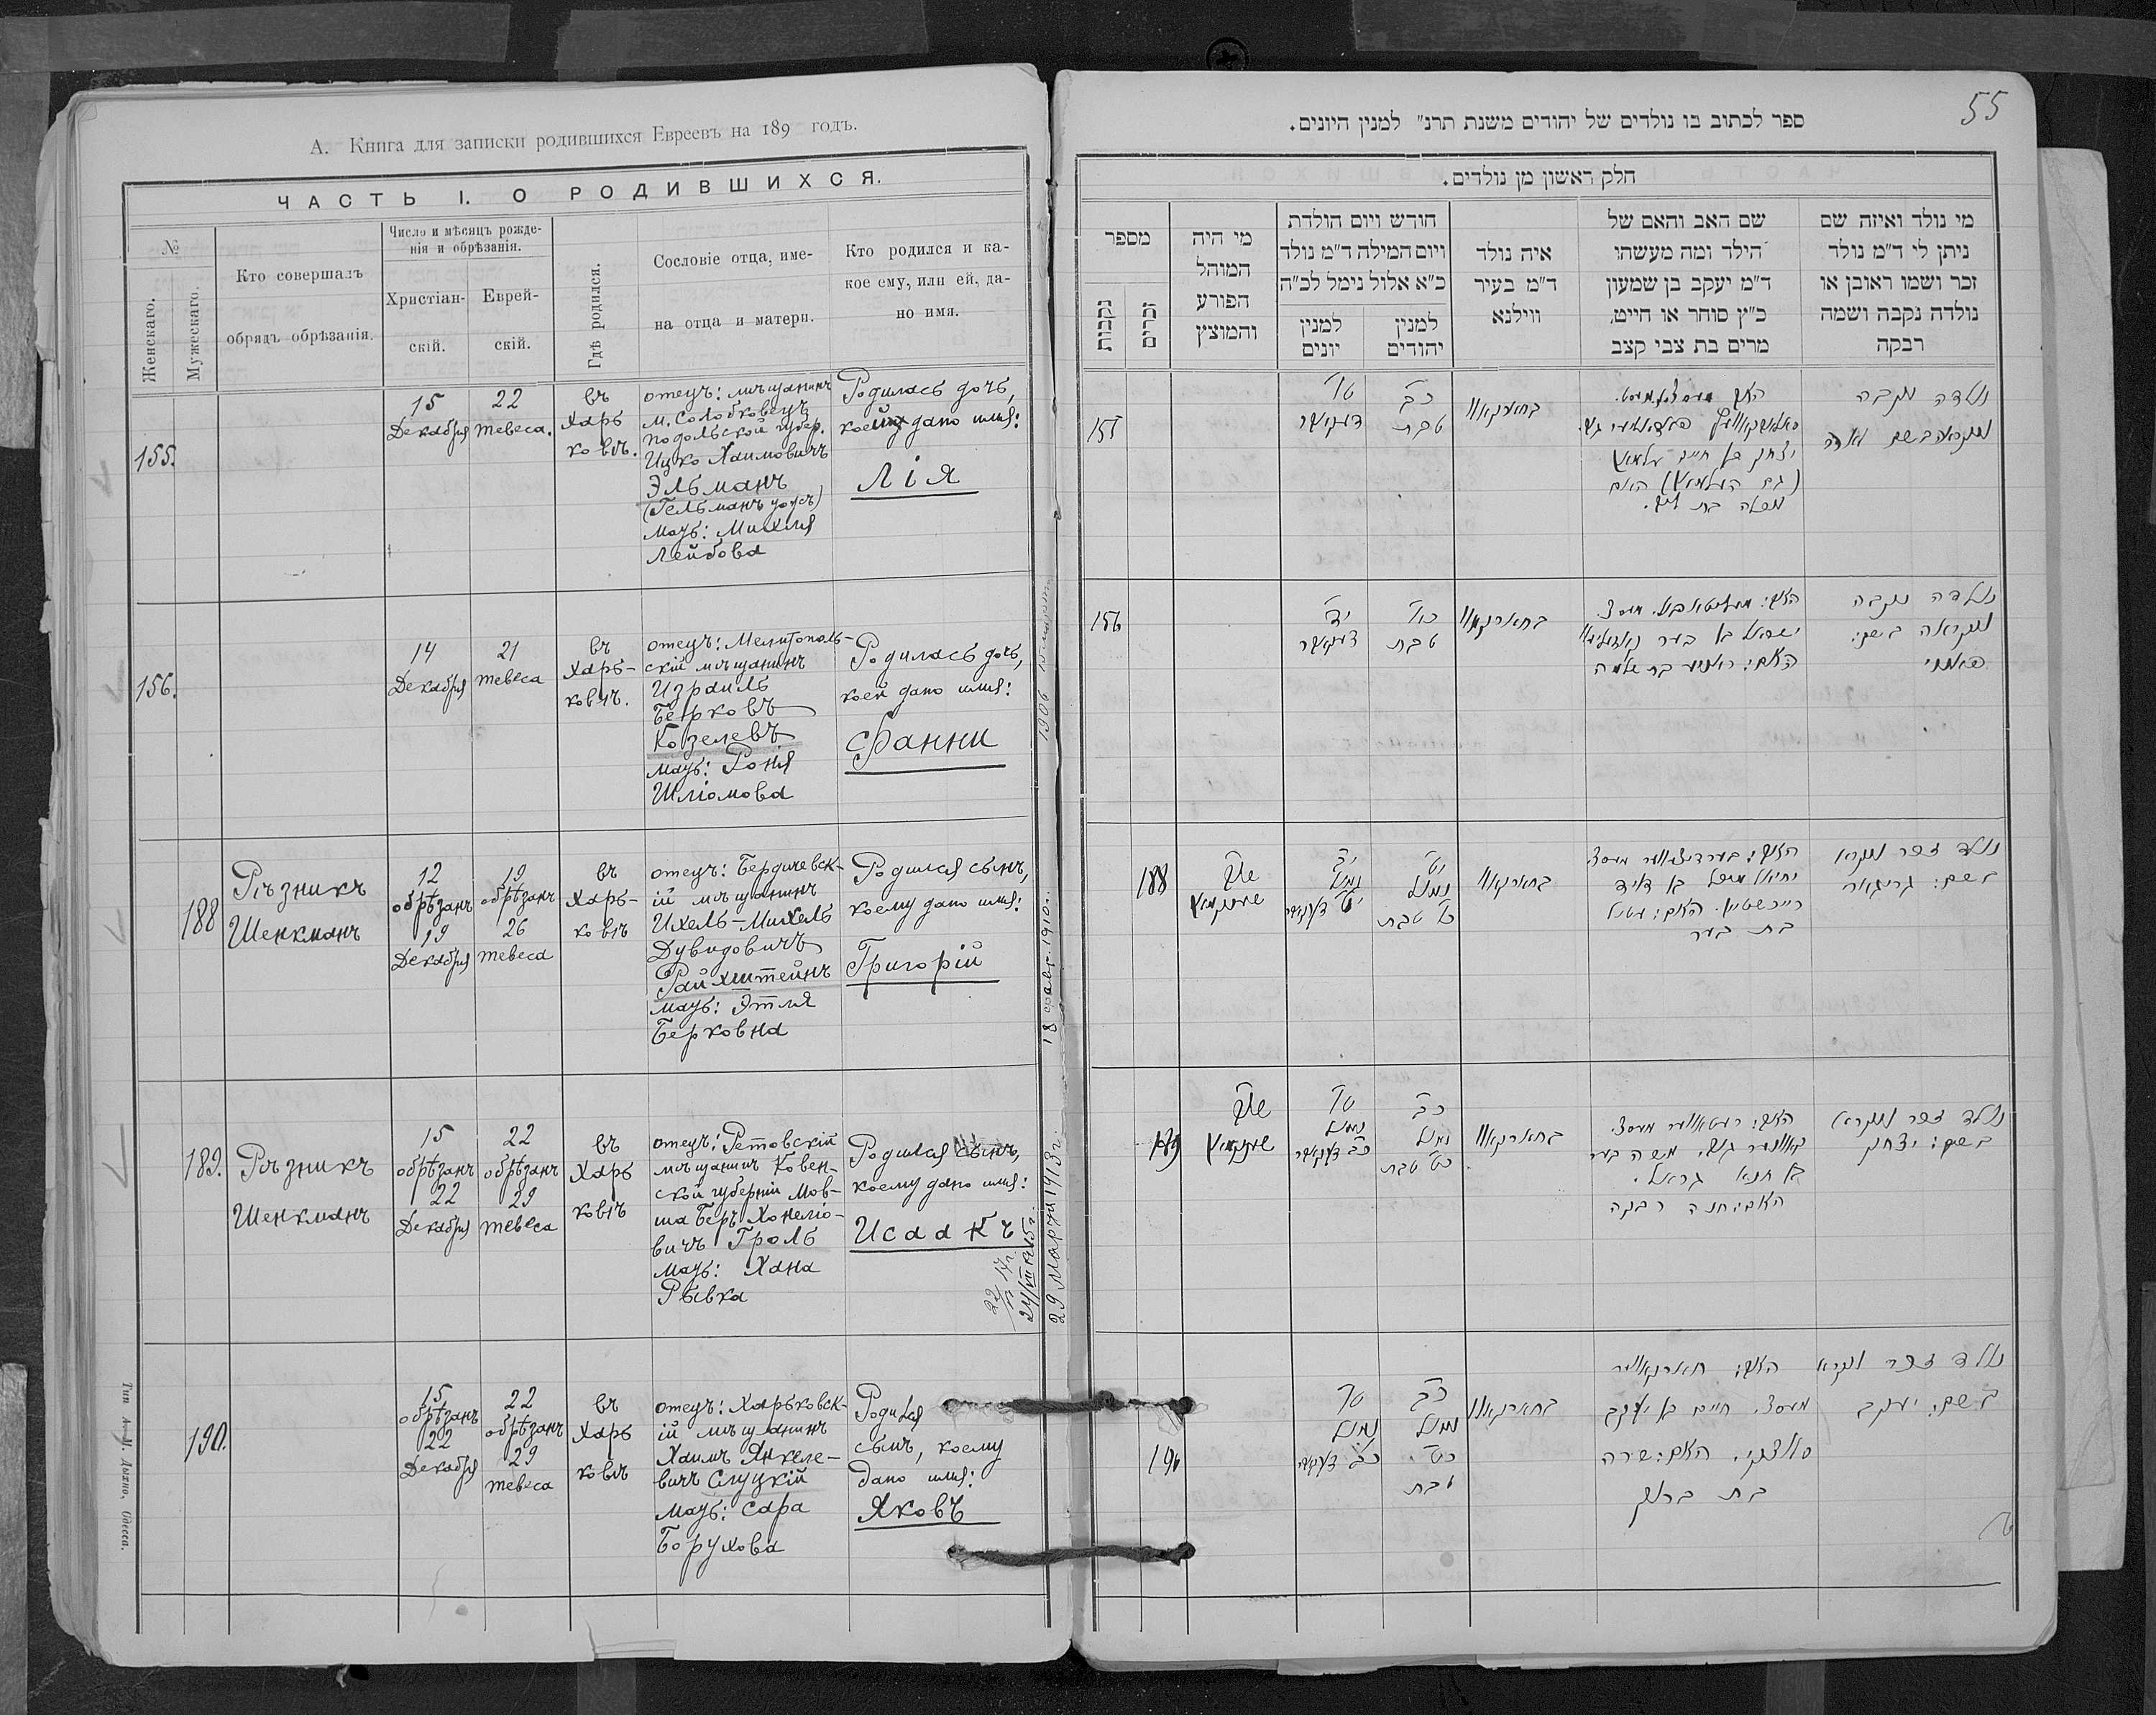 А. Книга для записки родившихся Евреевъ на 189 годъ.
ЧАСТЬ I. О РОДИВШИХСЯ.
№
Женскаго.
Мужескаго.
Кто совершалъ
обрядъ обрѣзанія.
Число и мѣсяцъ рожде-
нія и обрѣзанія.
Христіан-
скій.
Еврей-
скій.
Гдѣ родился.
Сословіе отца, име-
на отца и матери.
Кто родился и ка-
кое ему, или ей, да-
но имя.
155.
15
Декабря
22
тевеса.
въ
Харь
ковѣ.
отецъ: мѣщанинъ
м. Солобковецъ
подольской губер.
Ицко Хаимовичъ
Эльманъ
(Гельманъ тожъ)
мать: Михля
Лейбова
Родилась дочь,
коей дано имя:
Лія
156.
14
Декабря
21
тевеса
въ
Харь-
ковѣ.
отецъ: Мелитополь-
скій мѣщанинъ
Израиль
Берковъ
Козелевъ
мать: Роня
Шліомова
Родилась дочь,
коей дано имя:
Фанни
188
Рѣзникъ
Шенкманъ
12
обрѣзанъ
19
Декабря
19
обрѣзанъ
26
тевеса
въ
Харь-
ковѣ
отецъ: Бердичевск-
ій мѣщанинъ
Ихель-Михель
Дувидовичъ
Райхштейнъ
мать: Этля
Берковна
Родился сынъ,
коему дано имя:
Григорій
189.
Рѣзникъ
Шенкманъ
15
обрѣзанъ
22
Декабря
22
обрѣзанъ
29
тевеса
въ
Харь
ковѣ
отецъ: Ретовскій
мѣщанинъ Ковен-
ской губерніи Мов-
ша Беръ Хонеліо-
вичъ Гроль
мать: Хана
Рывка
Родился сынъ,
коему дано имя:
Исаакъ
190.
15
обрѣзанъ
22
Декабря
22
обрѣзанъ
29
тевеса
въ
Харь
ковѣ
отецъ: Харьковск-
ій мѣщанинъ
Хаимъ Янкеле-
вичъ Слуцкій
мать: Сара
Борухова
Родился
сынъ, коему
дано имя:
Яковъ
29 Марта 1913 г.
Тип. А. М. Дыхно, Одесса.
55
ספר לכתוב בו נולדים של יהודים משנת תרנ״ למנין היונים.
חלק ראשון מן נולדים.
מי נולד ואיזה שם
ניתן לי ד״מ נולד
זכר ושמו ראובן או
נולדה נקבה ושמה
רבקה
שם האב והאם של
הילד ומה מעשהו
ד״מ יעקב בן שמעון
כ״ץ סוחר או חייט,
מרים בת צבי קצב
איה נולד
ד״מ בעיר
ווילנא
חודש ויום הולדת
ויום המילה ד״מ נולד
כ״א אלול נימל לכ״ה
למנין
יהודים
למנין
יונים
מי היה
המוהל
הפורע
והמוצץ
מספר
זכרים
נקבות
נולדה נקבה
ונקראה בשם לאה
יצחק בן חיים
כב
טבת
טו
דעקאבר
155
נולדה נקבה
ונקראה בשם:
פאנני
כא
טבת
יד
דעקאבר
156
נולד זכר ונקרא
בשם: גריגארי
בת בער
יט
נמול
כו טבת
יב
נמול
יט דעקאבר
188
נולד זכר ונקרא
בשם: יצחק
האם: חנה רבקה
כב
נמול
כט טבת
טו
נמול
כב דעקאבר
189
נולד זכר ונקרא
בשם: יעקב
האב: חארקאווער
מעסצ. חיים בן יעקב
סלוצקי. האם: שרה
בת ברוך
כב
נמול
כט
טבת
טו
נמול
כב דעקאבר
190